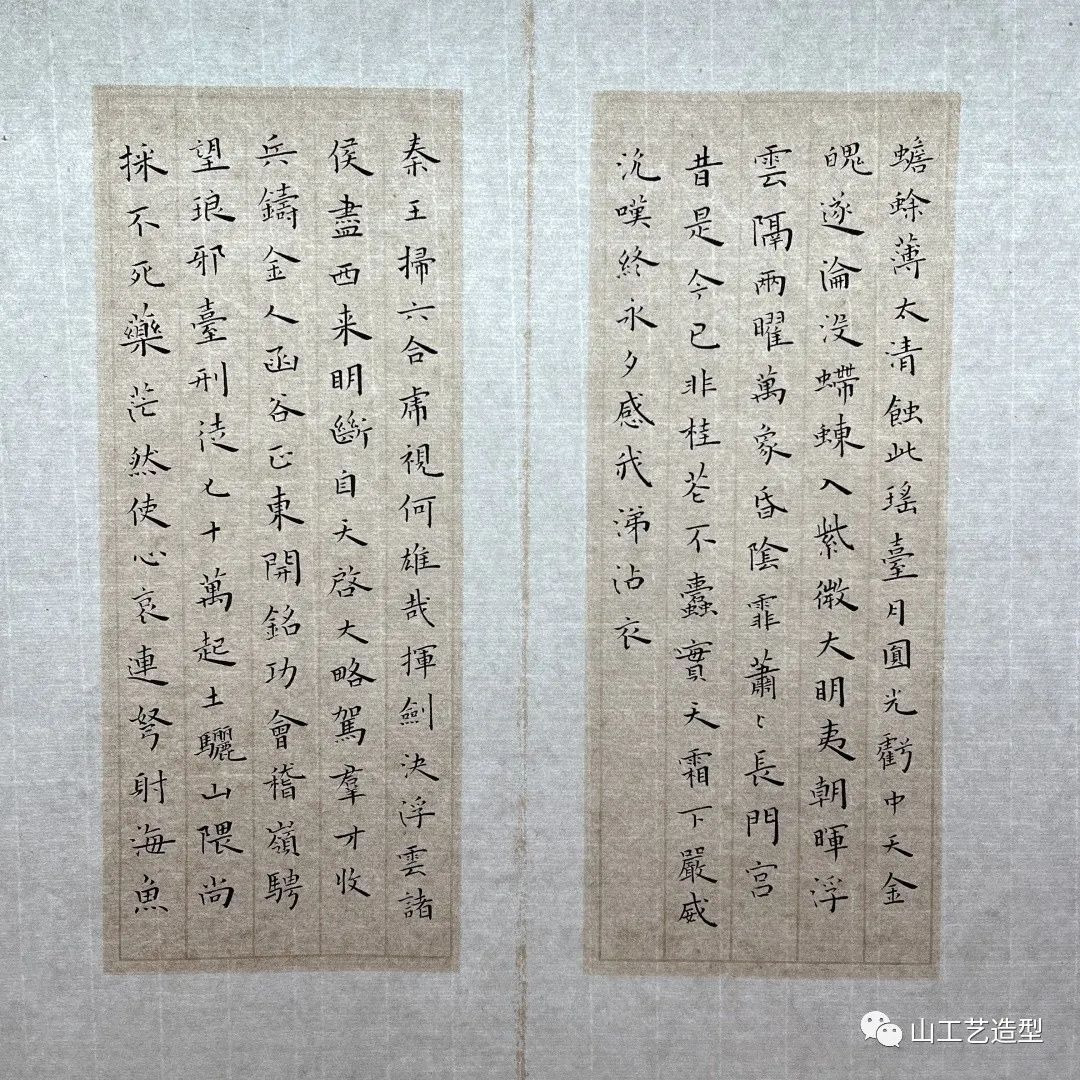 蟾蜍薄太清蝕此瑤臺月圓光虧中天金
魄遂淪沒螮蝀入紫微大明夷朝暉浮
雲隔兩曜萬象昏陰霏蕭〻長門宮
昔是今已非桂花不蠹實天霜下嚴威
沉嘆終永夕感我涕沾衣
秦王掃六合虎視何雄哉揮劍決浮雲諸
侯盡西来明斷自天啓大略駕羣才收
兵鑄金人函谷正東開銘功會稽嶺騁
望琅邪臺刑徒七十萬起土驪山隈尚
採不死藥茫然使心哀連弩射海魚
山工艺造型